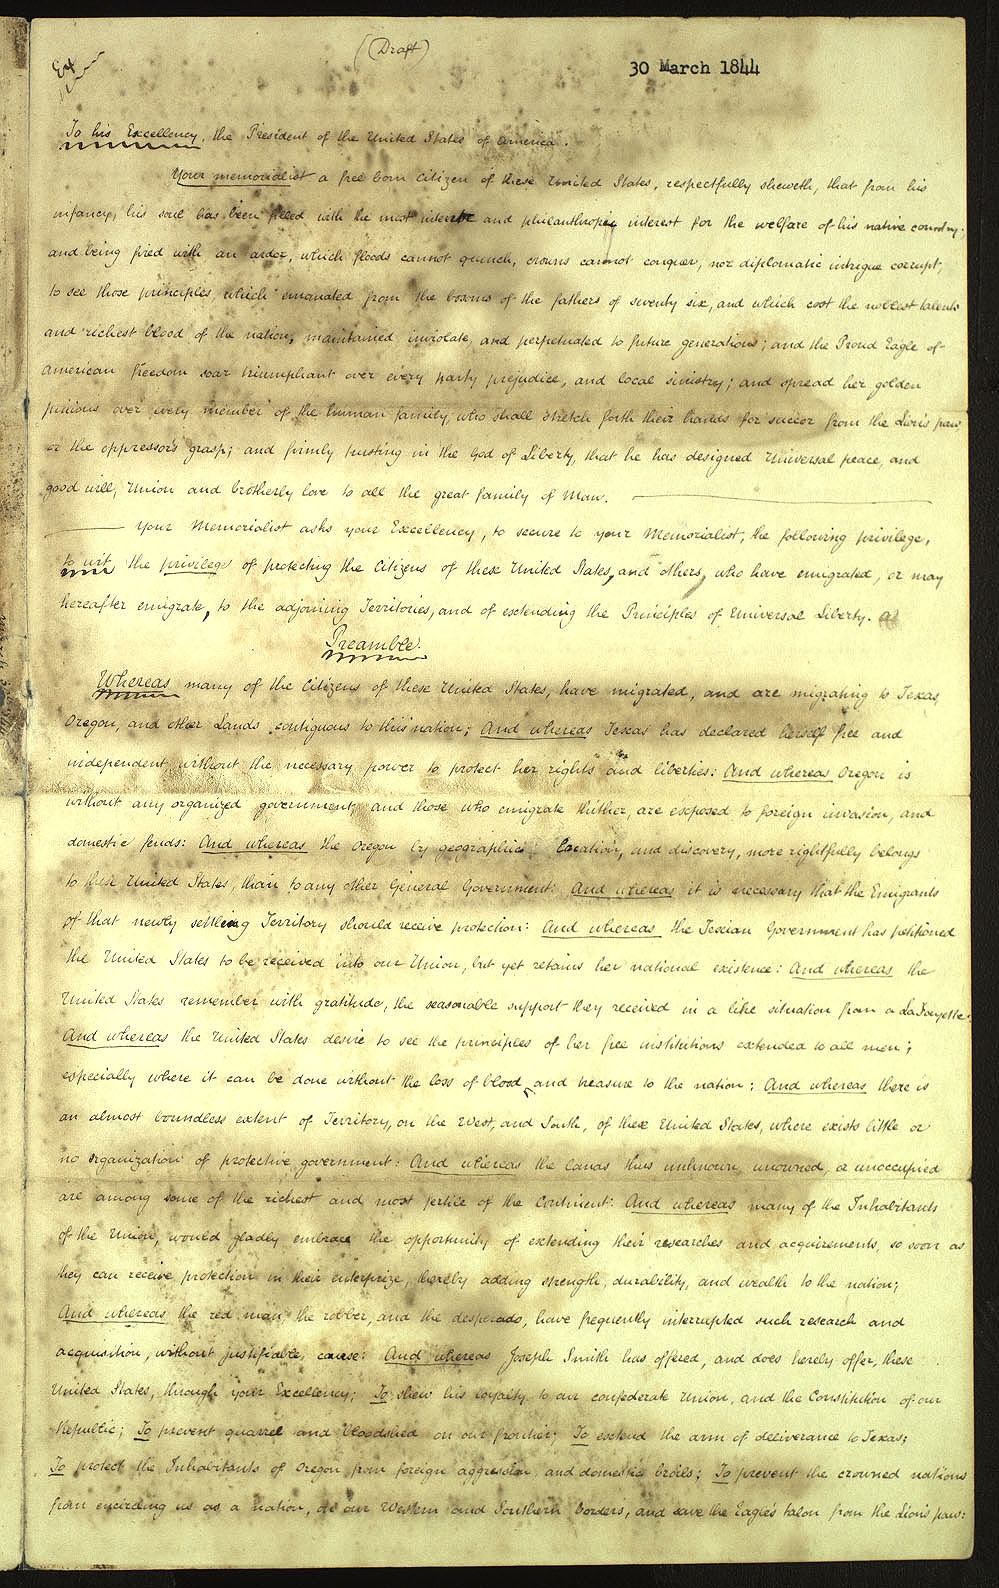 (Draft)
30 March 1844
To his Excellency, the President of the United States of America.
Your memorialist a free born Citizen of these United States, respectfully sheweth, that from his
infancy, his soul has been filled with the most intense and philanthropic interest for the welfare of his native country;
and being fired with an ardor, which floods cannot quench, crowns cannot conquer, nor diplomatic intrigue corrupt,
to see those principles, which emanated from the bosoms of the fathers of seventy six, and which cost the noblest talents
and richest blood of the nation, maintained inviolate, and perpetuated to future generations; and the Proud Eagle of
American freedom soar triumphant over every party prejudice, and local sinistry; and spread her golden
pinions over every member of the human family, who shall stretch forth their hands for succor from the Lion's paw
or the oppressor's grasp; and firmly trusting in the God of Liberty, that he has designed Universal peace, and
good will, Union and brotherly love to all the great family of Man.
Your Memorialist asks your Excellency, to secure to your Memorialist, the following privilege,
to wit, the privilege of protecting the Citizens of these United States, and others, who have emigrated, or may
hereafter emigrate, to the adjoining Territories, and of extending the Principles of Universal Liberty.
Preamble.
Whereas many of the Citizens of these United States, have migrated, and are migrating to Texas,
Oregon, and other Lands contiguous to this nation; And whereas Texas has declared herself free and
independent, without the necessary power to protect her rights and liberties: And whereas Oregon is
without any organized government, and those who emigrate thither, are exposed to foreign invasion, and
domestic feuds: And whereas the Oregon by geographical location, and discovery, more rightfully belongs
to these United States, than to any other General Government: And whereas it is necessary that the Emigrants
of that newly settling Territory should receive protection: And whereas the Texian Government has petitioned
the United States to be received into our Union, but yet retains her national existence: And whereas the
United States remember with gratitude, the seasonable support they received in a like situation from a La Fayette:
And whereas the United States desire to see the principles of her free institutions extended to all men;
especially where it can be done without the loss of blood, and treasure to the nation: And whereas there is
an almost boundless extent of Territory, on the West, and South, of these United States, where exists little or
no organization of protective government: And whereas the lands thus unknown, unowned, or unoccupied
are among some of the richest and most fertile of the Continent: And whereas many of the Inhabitants
of the Union, would gladly embrace the opportunity of extending their researches and acquirements, so soon as
they can receive protection in their enterprize, thereby adding strength, durability, and wealth to the nation;
And whereas the red man, the robber, and the desperado, have frequently interrupted such research and
acquisition, without justifiable cause: And whereas Joseph Smith has offered, and does hereby offer, these
United States, through your Excellency; To shew his loyalty to our confederate Union, and the Constitution of our
Republic; To prevent quarrel and bloodshed on our frontier; To extend the arm of deliverance to Texas;
To protect the Inhabitants of Oregon from foreign aggression, and domestic broils; To prevent the crowned nations
from encircling us as a nation, on our Western and Southern borders, and save the Eagle's talon from the Lion's paw: